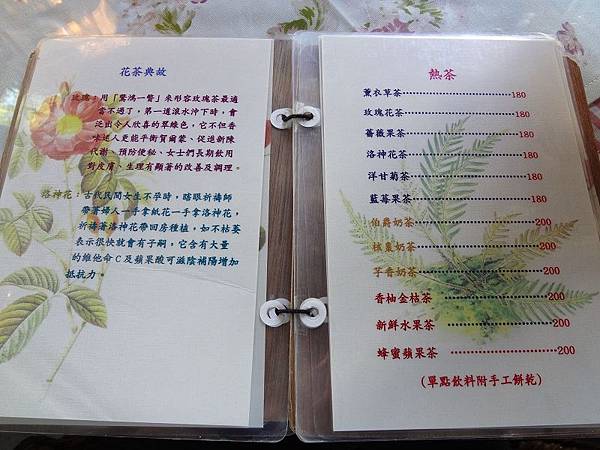 花茶典故
玫瑰：用「驚鴻一瞥」來形容玫瑰茶最適
當不過了，第一道滾水沖下時，會
泛出令人欣喜的翠綠色，它不但香
味迷人更能平衡賀爾蒙、促進新陳
代謝、預防便秘、女士們長期飲用
對皮膚、生理有顯著的改善及調理。
洛神花：古代民間女生不孕時，瞎眼祈禱師
帶著婦人一手拿紙花一手拿洛神花，
祈禱著洛神花帶回房種植，如不枯萎
表示很快就會有子嗣，它含有大量
的維他命C及蘋果酸可滋陰補陽增加
抵抗力。
熱茶
薰衣草茶 180
玫瑰花茶 180
薔薇果茶 180
洛神花茶 180
洋甘菊茶 180
藍莓果茶 180
伯爵奶茶 200
核棗奶茶 200
芋香奶茶 200
香柚金桔茶 200
新鮮水果茶 200
蜂蜜蘋果茶 200
(單點飲料附手工餅乾)